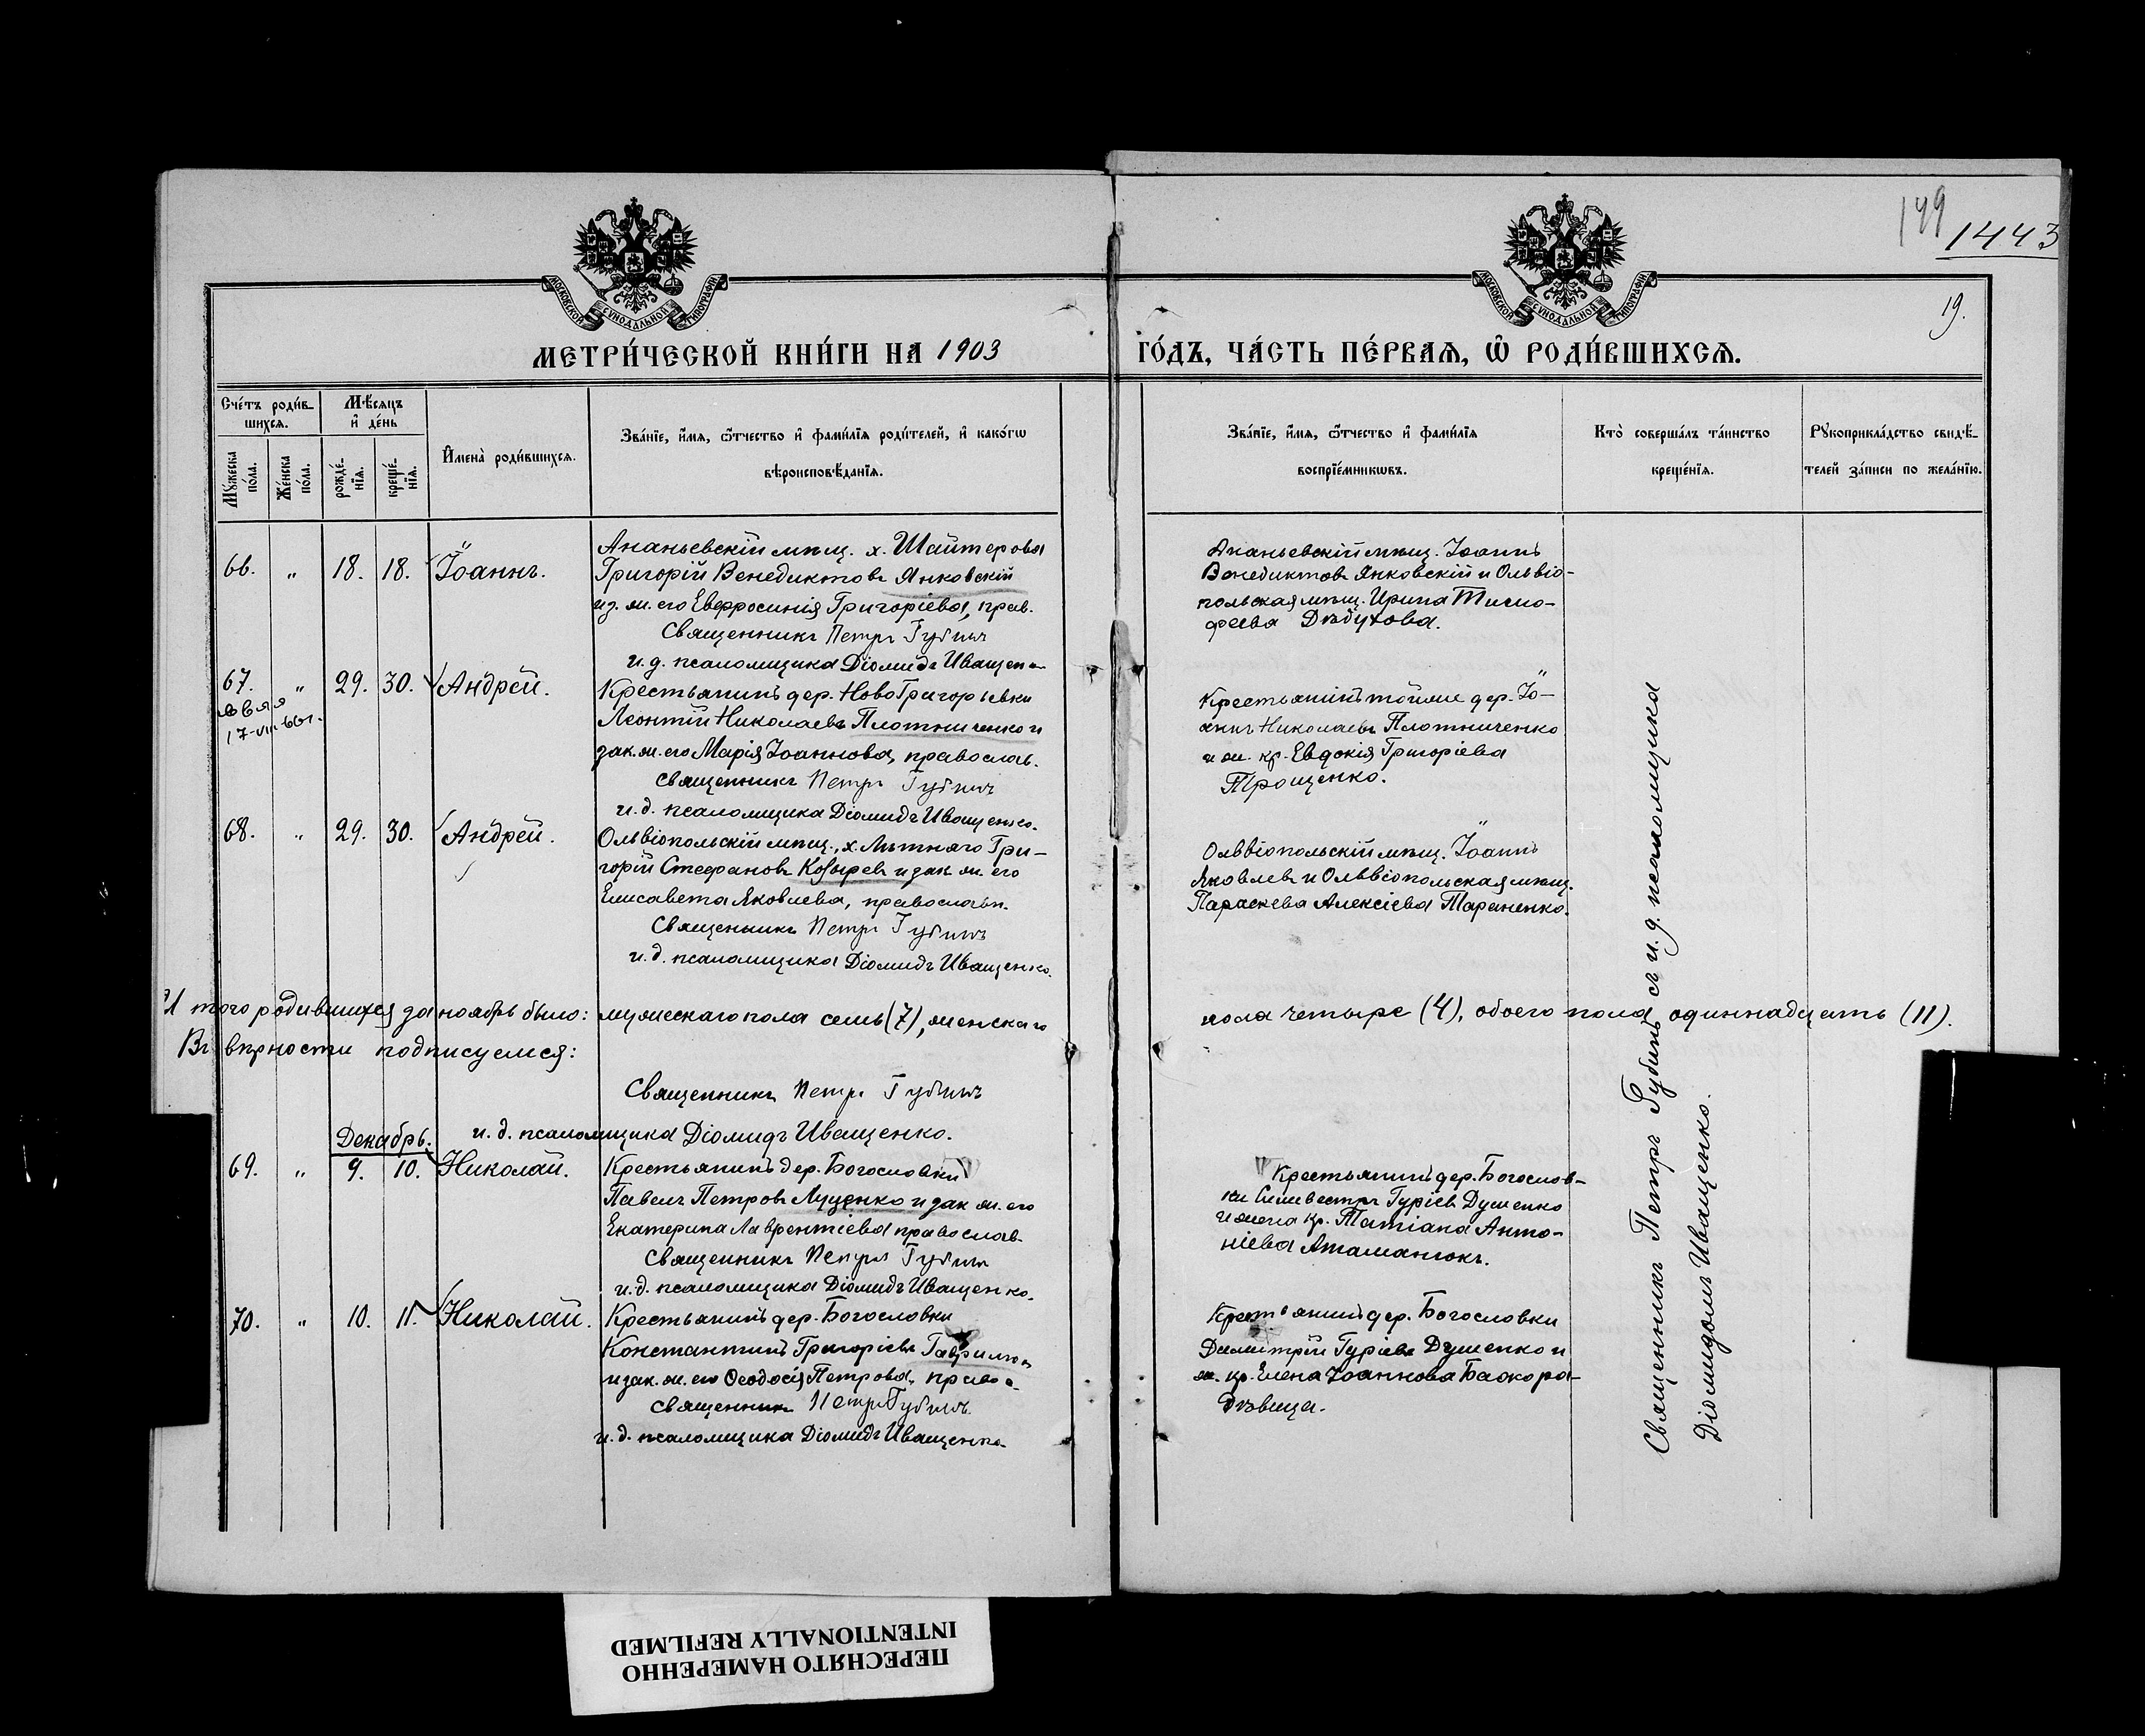 149
1443
19.
МОСКОВСКОЙ СУНОДАЛЬНОЙ ТИПОГРАФІИ
МОСКОВСКОЙ СУНОДАЛЬНОЙ ТИПОГРАФІИ
МЕТРИ́ЧЕСКОЙ КНИ́ГИ НА 1903
ГО́ДЪ, ЧА́СТЬ ПЕ́РВАѦ, Ѡ҆ РОДИ́ВШИХСѦ.
Сче́тъ роди́в-
шихсѧ.
Мѣ́сѧцъ
и҆ де́нь
Му́жеска по́ла.
Же́нска по́ла.
рожде́-
нїѧ.
креще́-
нїѧ.
И҆мена̀ роди́вшихсѧ.
Зва́нїе, и҆́мѧ, ѻ҆́тчество и҆ фами́лїѧ роди́телей, и҆ како́гѡ
вѣроисповѣ́данїѧ.
Зва́нїе, и҆́мѧ, ѻ҆́тчество и҆ фами́лїѧ
воспрїе́мникѡвъ.
Кто̀ соверша́лъ та́инство
креще́нїѧ.
Рꙋкоприкла́дство свидѣ́-
телей за́писи по жела́нїю.
66. " 18. 18. Іоаннъ.
Ананьевскій мѣщ. х. Шайтерова
Григорій Венедиктовъ Янковскій
и з. ж. его Евфросинія Григоріева, прав.
Священникъ Петръ Губинъ
и. д. псаломщика Діомидъ Иващенко
Ананьевскій мѣщ. Іоаннъ
Венедиктовъ Янковскій и Ольвіо-
польская мѣщ. Ирина Тимо-
феева Дѣдухова.
67. " 29. 30. Андрей.
17-VIII
Крестьянинъ дер. НовоГригорьевки
Леонтій Николаевъ Плотниченко и
зак. ж. его Марія Іоаннова, православ.
Священникъ Петръ Губинъ
и. д. псаломщика Діомидъ Иващенко.
Крестьянинъ тойже дер. Іо-
аннъ Николаевъ Плотниченко
и ж. кр. Евдокія Григоріева
Трощенко.
68. " 29. 30. Андрей.
Ольвіопольскій мѣщ., х. Лѣтняго Гри-
горій Стефановъ Козыревъ и зак. ж. его
Елисавета Яковлева, православн.
Священникъ Петръ Губинъ
и. д. псаломщика Діомидъ Иващенко.
Ольвіопольскій мѣщ. Іоаннъ
Яковлевъ и Ольвіопольская мѣщ.
Параскева Алексіева Тараненко.
Итого родившихся за ноябрь было: мужескаго пола семь (7), женскаго
пола четыре (4), обоего пола одиннадцать (11).
Въ вѣрности подписуемся:
Священникъ Петръ Губинъ
и. д. псаломщика Діомидъ Иващенко.
Декабрь.
69. " 9. 10. Николай.
Крестьянинъ дер. Богословки
Павелъ Петровъ Луценко и зак. ж. его
Екатерина Лаврентіева православ.
Священникъ Петръ Губинъ
и. д. псаломщика Діомидъ Иващенко.
Крестьянинъ дер. Богослов-
ки Сильвестръ Гуріевъ Душенко
и жена кр. Татіана Анто-
ніева Атаманюкъ.
70. " 10. 11. Николай.
Крестьянинъ дер. Богословки
Константинъ Григоріевъ Гаврилюк
и зак. ж. его Ѳеодосія Петрова, правос.
Священникъ Петръ Губинъ
и. д. псаломщика Діомидъ Иващенко
Крестьянинъ дер. Богословки
Димитрій Гуріевъ Душенко и
ж. кр. Елена Іоаннова
дѣвица.
Священникъ Петръ Губинъ съ и. д. псаломщика
Діомидомъ Иващенко.
ПЕРЕСНЯТО НАМЕРЕННО
INTENTIONALLY REFILMED